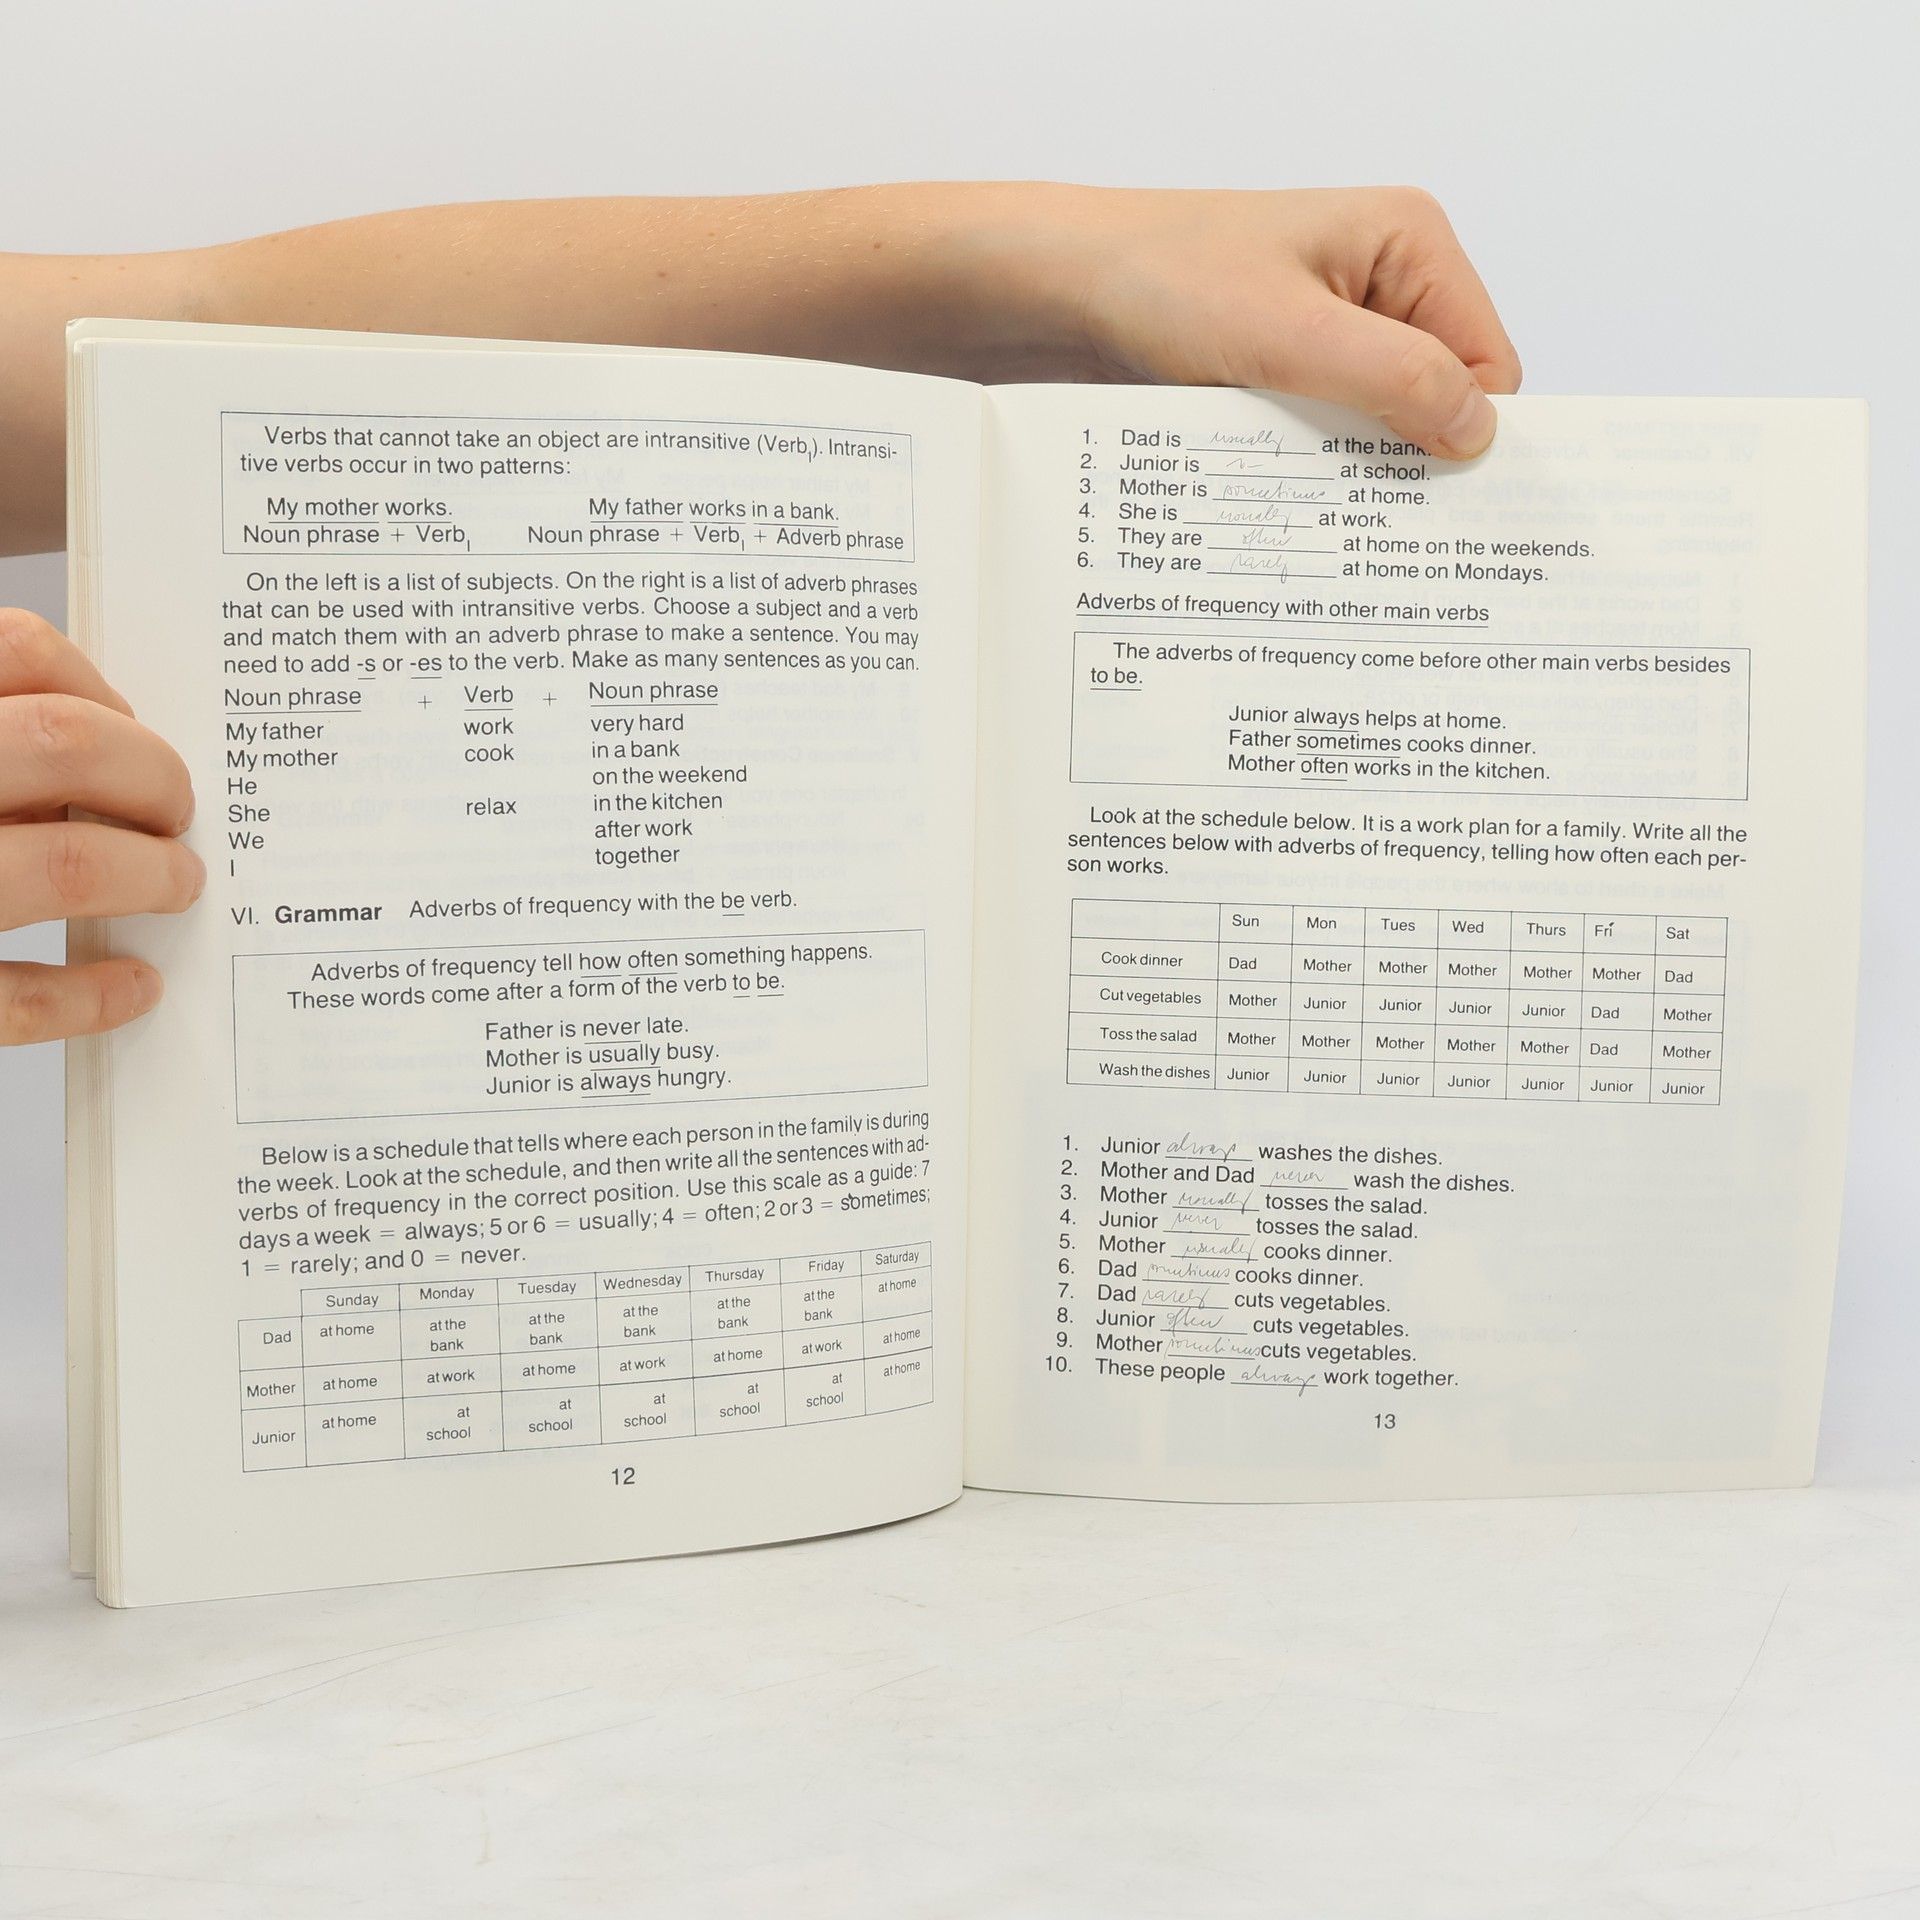 Verbs that cannot take an object are intransitive (Verb₁). Intransi-
tive verbs occur in two patterns:
My mother works. My father works in a bank.
Noun phrase + Verb₁ Noun phrase + Verb₁ + Adverb phrase
On the left is a list of subjects. On the right is a list of adverb phrases
that can be used with intransitive verbs. Choose a subject and a verb
and match them with an adverb phrase to make a sentence. You may
need to add -s or -es to the verb. Make as many sentences as you can.
Noun phrase + Verb + Noun phrase
My father work very hard
My mother cook in a bank
He on the weekend
She relax in the kitchen
We after work
I together
VI. Grammar Adverbs of frequency with the be verb.
Adverbs of frequency tell how often something happens.
These words come after a form of the verb to be.
Father is never late.
Mother is usually busy.
Junior is always hungry.
Below is a schedule that tells where each person in the family is during
the week. Look at the schedule, and then write all the sentences with ad-
verbs of frequency in the correct position. Use this scale as a guide: 7
days a week = always; 5 or 6 = usually; 4 = often; 2 or 3 = sometimes;
1 = rarely; and 0 = never.
Sunday Monday Tuesday Wednesday Thursday Friday Saturday
Dad at home at the bank at the bank at the bank at the bank at the bank at home
Mother at home at work at home at work at home at work at home
Junior at home at school at school at school at school at school at home
12
1. Dad is usually at the bank.
2. Junior is at school.
3. Mother is sometimes at home.
4. She is usually at work.
5. They are often at home on the weekends.
6. They are rarely at home on Mondays.
Adverbs of frequency with other main verbs
The adverbs of frequency come before other main verbs besides
to be.
Junior always helps at home.
Father sometimes cooks dinner.
Mother often works in the kitchen.
Look at the schedule below. It is a work plan for a family. Write all the
sentences below with adverbs of frequency, telling how often each per-
son works.
Sun Mon Tues Wed Thurs Fri Sat
Cook dinner Dad Mother Mother Mother Mother Mother Dad
Cut vegetables Mother Junior Junior Junior Junior Dad Mother
Toss the salad Mother Mother Mother Mother Mother Dad Mother
Wash the dishes Junior Junior Junior Junior Junior Junior Junior
1. Junior always washes the dishes.
2. Mother and Dad never wash the dishes.
3. Mother usually tosses the salad.
4. Junior never tosses the salad.
5. Mother usually cooks dinner.
6. Dad sometimes cooks dinner.
7. Dad rarely cuts vegetables.
8. Junior often cuts vegetables.
9. Mother sometimes cuts vegetables.
10. These people always work together.
13